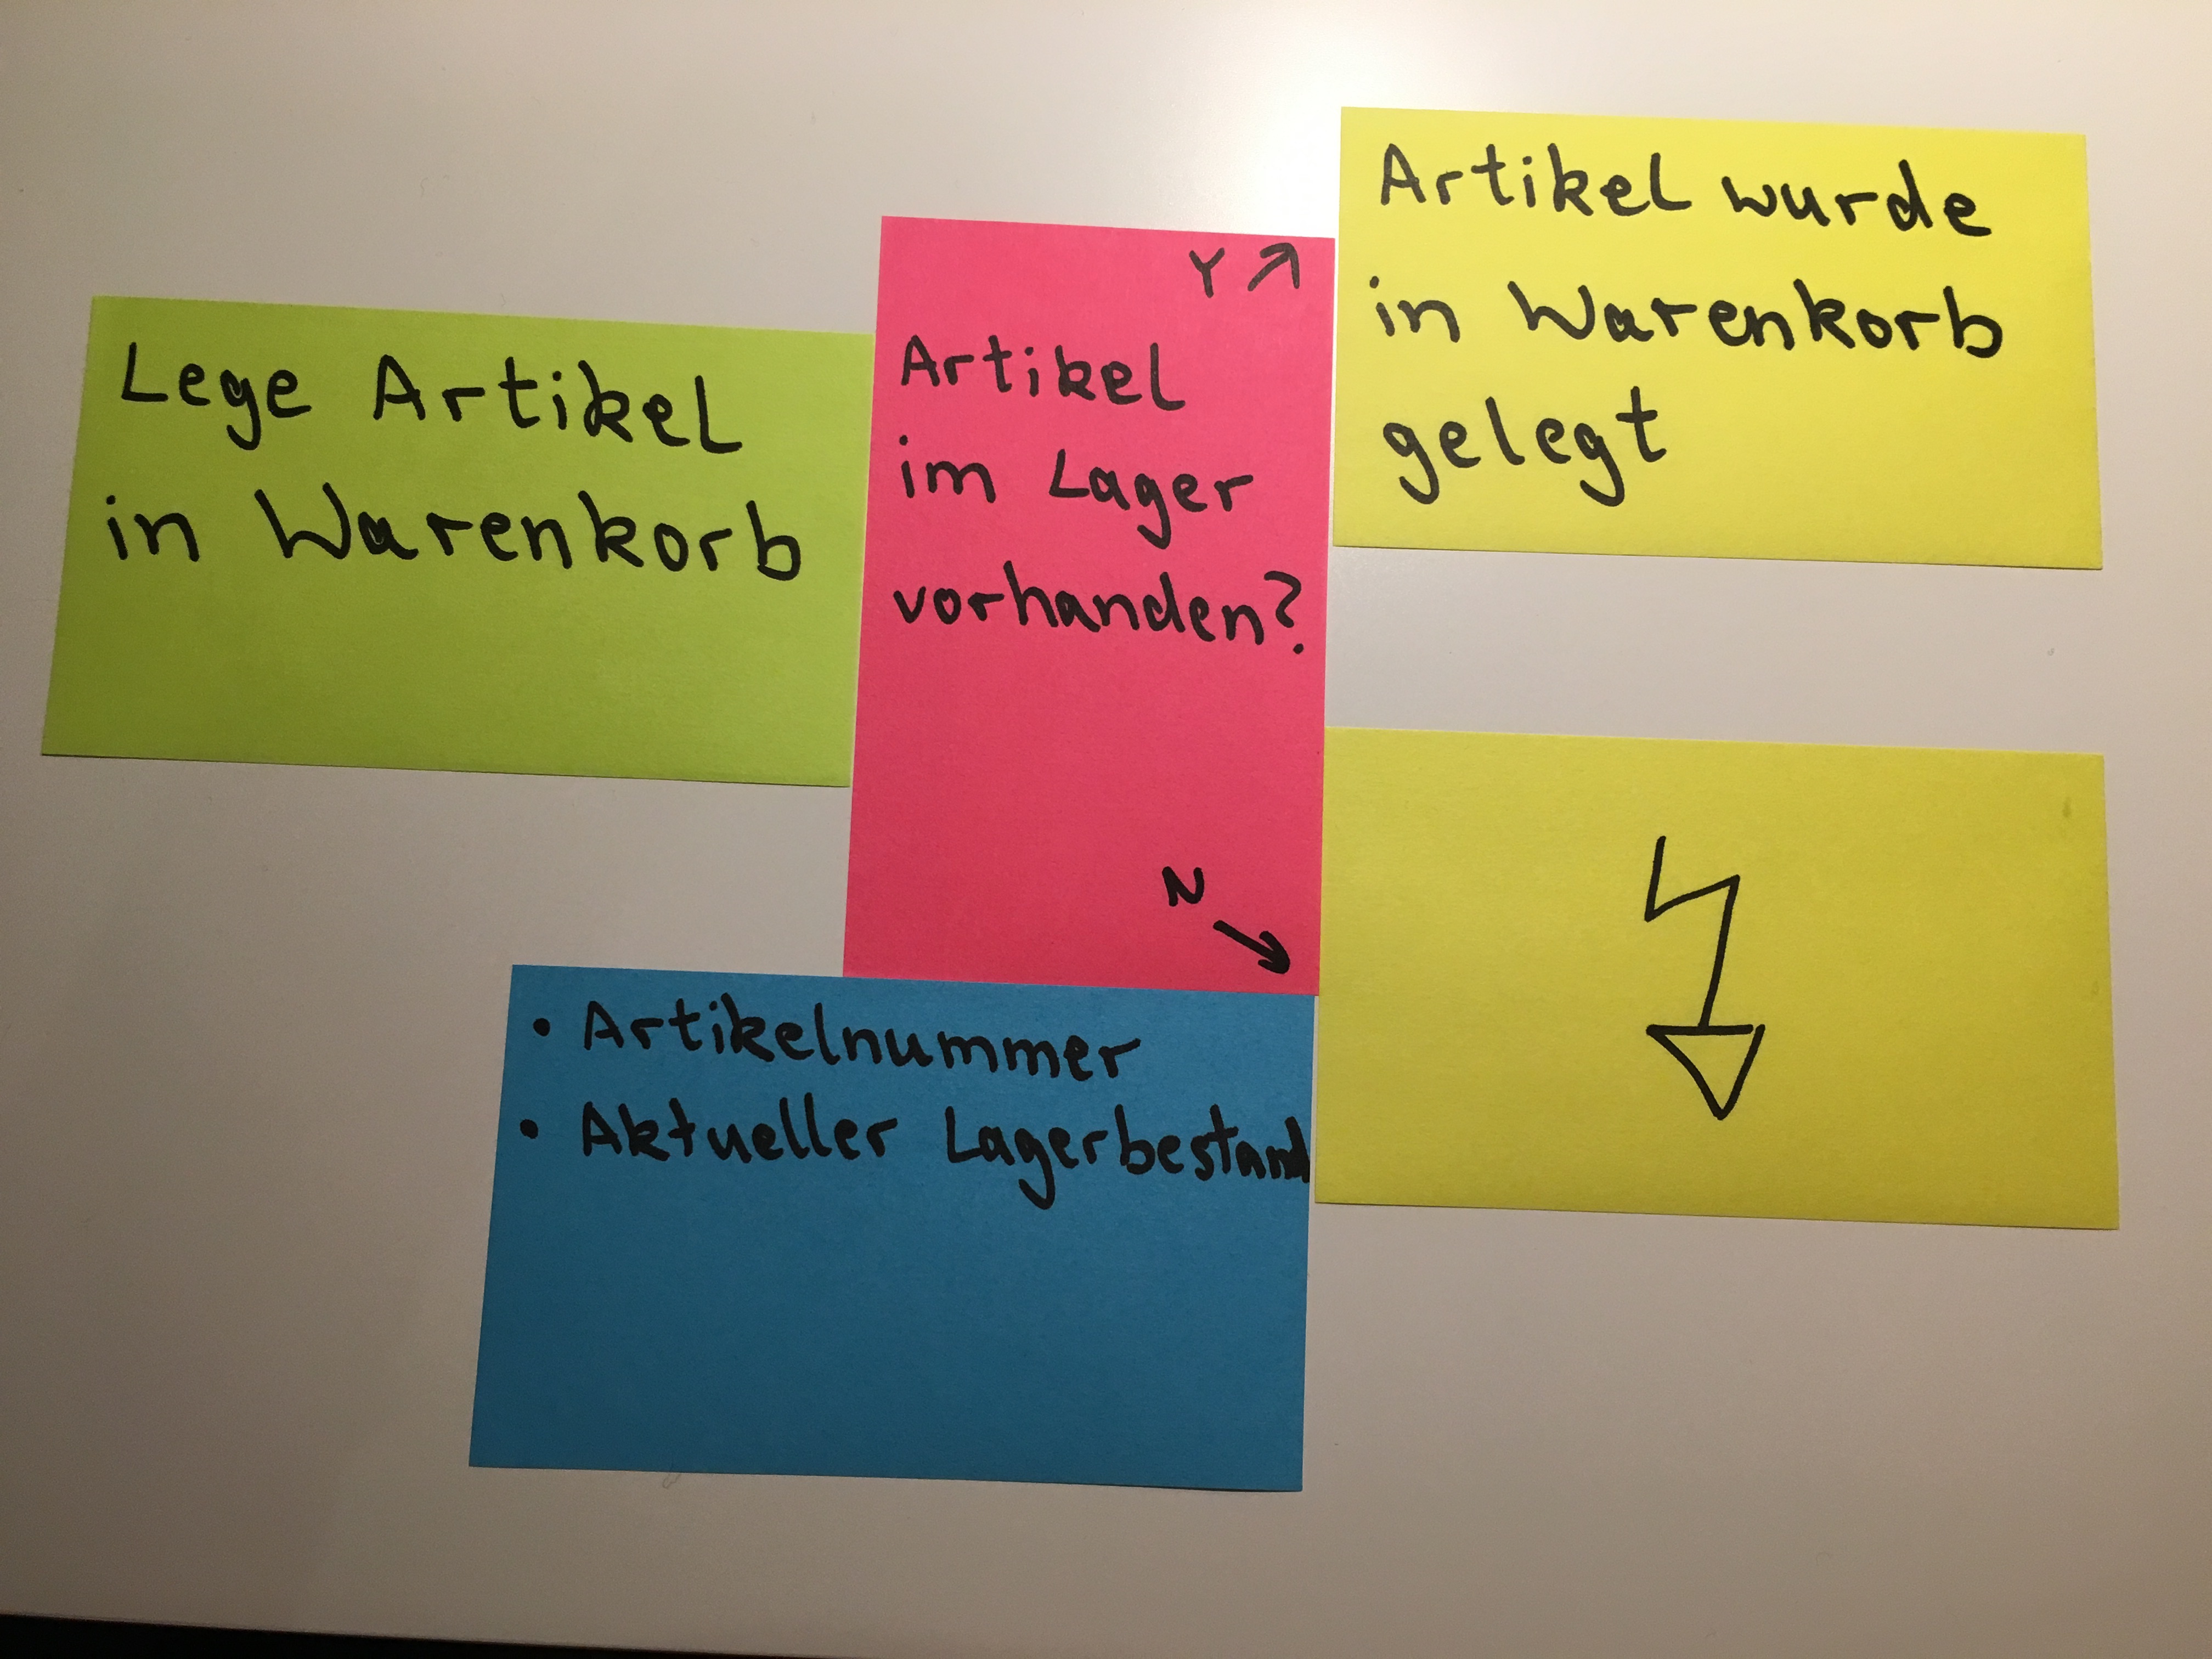 Lege Artikel
in Warenkorb
Y ↗
Artikel
im Lager
vorhanden?
N
↘
Artikel wurde
in Warenkorb
gelegt
• Artikelnummer
• Aktueller Lagerbestand